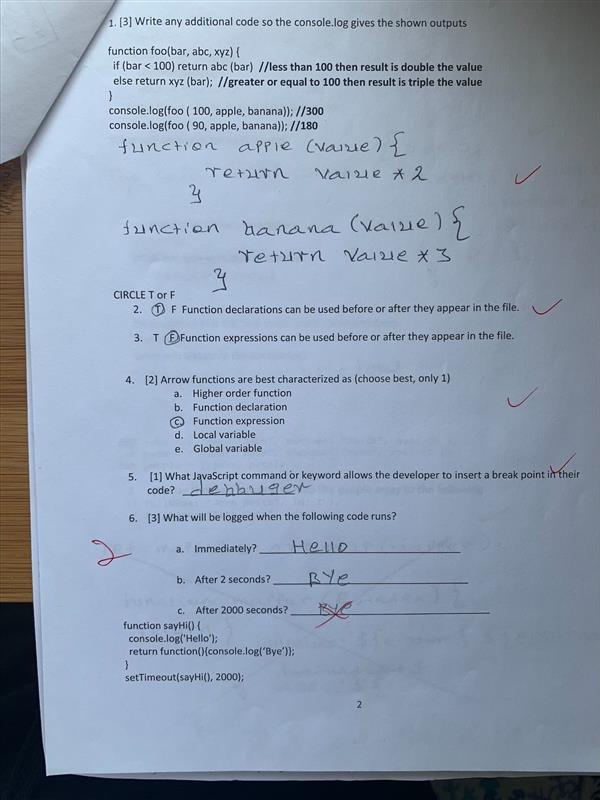 1. [3] Write any additional code so the console.log gives the shown outputs
function foo(bar, abc, xyz) {
if (bar < 100) return abc (bar) //less than 100 then result is double the value
else return xyz (bar); //greater or equal to 100 then result is triple the value
}
console.log(foo ( 100, apple, banana)); //300
console.log(foo ( 90, apple, banana)); //180
function apple (value) {
return value * 2
}
function banana (value) {
return value * 3
}
CIRCLE T or F
2. T F Function declarations can be used before or after they appear in the file.
3. T F Function expressions can be used before or after they appear in the file.
4. [2] Arrow functions are best characterized as (choose best, only 1)
a. Higher order function
b. Function declaration
c. Function expression
d. Local variable
e. Global variable
5. [1] What JavaScript command or keyword allows the developer to insert a break point in their
code? debbuger
6. [3] What will be logged when the following code runs?
2
a. Immediately? Hello
b. After 2 seconds? Bye
c. After 2000 seconds? Bye
function sayHi() {
console.log('Hello');
return function(){console.log('Bye')};
}
setTimeout(sayHi(), 2000);
2